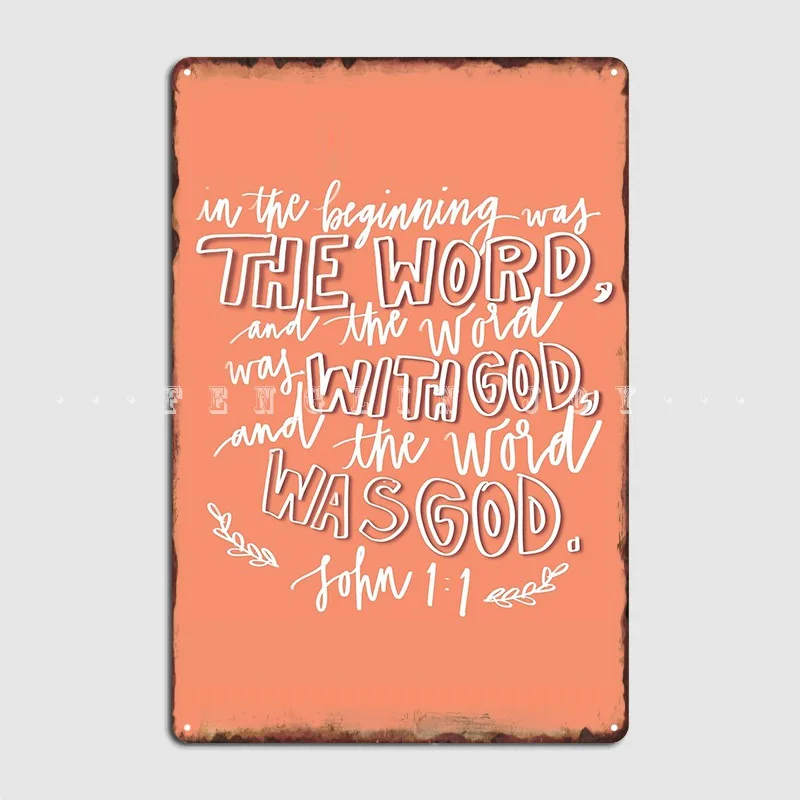 in the beginning was
THE WORD,
and the word
was WITH GOD,
and the word
WAS GOD.
John 1:1